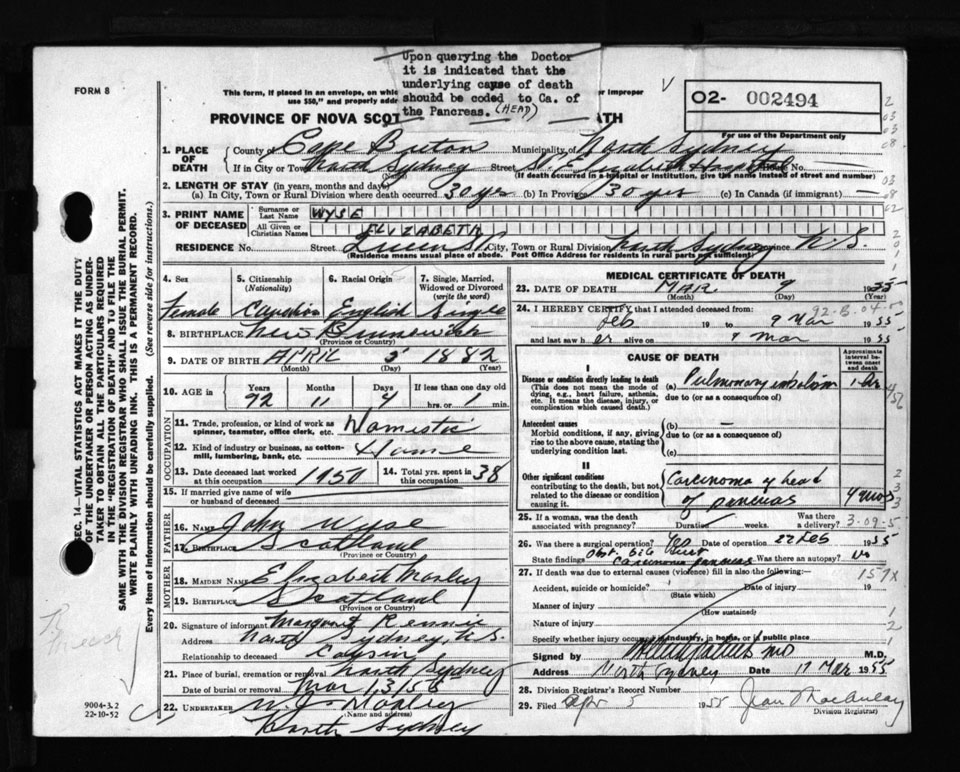 Upon querying the Doctor
it is indicated that the
underlying cause of death
should be coded to Ca. of
the Pancreas. (HEAD)
FORM 8
This form, if placed in an envelope, on
use $50," and properly
or improper
PROVINCE OF NOVA SCOT
ATH
02- 002494
For use of the Department only
1. PLACE OF DEATH
County of Cape Breton Municipality of North Sydney
If in City or Town North Sydney Street St. Elizabeth Hospital No.
(If death occurred in a hospital or institution, give the name instead of street and number)
2. LENGTH OF STAY (in years, months and days)
(a) In City, Town or Rural Division where death occurred 30 yrs (b) In Province 30 yrs (c) In Canada (if immigrant) —
3. PRINT NAME OF DECEASED
Surname or Last Name WYSE
All Given or Christian Names ELIZABETH
RESIDENCE No. Street Queen St. City, Town or Rural Division North Sydney Province N.S.
(Residence means usual place of abode. Post Office Address for residents in rural parts not sufficient)
4. Sex
Female
5. Citizenship (Nationality)
Canadian
6. Racial Origin
English
7. Single, Married, Widowed or Divorced (write the word)
Single
8. BIRTHPLACE New Brunswick
(Province or Country)
9. DATE OF BIRTH APRIL 5 1882
(Month) (Day) (Year)
10. AGE in Years 72 Months 11 Days 4 If less than one day old
hrs. or min.
OCCUPATION
11. Trade, profession, or kind of work as spinner, teamster, office clerk, etc. Domestic
12. Kind of industry or business, as cotton-mill, lumbering, bank, etc. Home
13. Date deceased last worked at this occupation 1950
14. Total yrs. spent in this occupation 38
15. If married give name of wife or husband of deceased
FATHER
16. NAME John Wyse
17. BIRTHPLACE Scotland
(Province or Country)
MOTHER
18. MAIDEN NAME Elizabeth Moxley
19. BIRTHPLACE Scotland
(Province or Country)
20. Signature of informant Margaret Rennie
Address North Sydney, N.S.
Relationship to deceased Cousin
21. Place of burial, cremation or removal North Sydney
Date of burial or removal Mar 13/55
22. UNDERTAKER W. J. Moxley
(Name and address)
North Sydney
MEDICAL CERTIFICATE OF DEATH
23. DATE OF DEATH MAR. 9 1955
(Month) (Day) (Year)
24. I HEREBY CERTIFY that I attended deceased from:
Feb 19 to 9 Mar 1955
and last saw her alive on 9 Mar 1955
CAUSE OF DEATH
Approximate interval between onset and death
I
Disease or condition directly leading to death
(This does not mean the mode of dying, e.g., heart failure, asthenia, etc. It means the disease, injury, or complication which caused death.
(a) Pulmonary embolism 1 hr
due to (or as a consequence of)
Antecedent causes
Morbid conditions, if any, giving rise to the above cause, stating the underlying condition last.
(b) —
due to (or as a consequence of)
(c)
II
Other significant conditions
contributing to the death, but not related to the disease or condition causing it.
Carcinoma of head
of pancreas 4 mos
25. If a woman, was the death associated with pregnancy? Duration weeks. Was there a delivery?
3-09-5
26. Was there a surgical operation? Yes Date of operation 22 Feb 1955
State findings Obst. bile duct
carcinoma pancreas Was there an autopsy? No
27. If death was due to external causes (violence) fill in also the following:
157X
Accident, suicide or homicide? Date of injury 19
(State which)
Manner of injury
(How sustained)
Nature of injury
Specify whether injury occurred in industry, in home, or in public place
Signed by M.D.
Address North Sydney Date 17 Mar 1955
28. Division Registrar's Record Number
29. Filed Apr 5 1955 Jean MacAulay
Division Registrar)
SEC. 14—VITAL STATISTICS ACT MAKES IT THE DUTY
OF THE UNDERTAKER OR PERSON ACTING AS UNDER-
TAKER TO OBTAIN ALL THE PARTICULARS REQUIRED
IN THE "REGISTRATION OF DEATH" AND TO FILE THE
SAME WITH THE DIVISION REGISTRAR WHO SHALL ISSUE THE BURIAL PERMIT.
WRITE PLAINLY WITH UNFADING INK. THIS IS A PERMANENT RECORD.
Every item of information should be carefully supplied. (See reverse side for instructions.)
9004-3.2
22-10-52